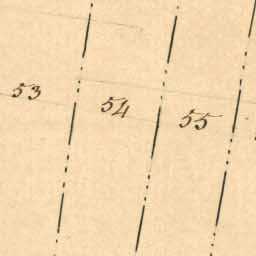 53 54 55